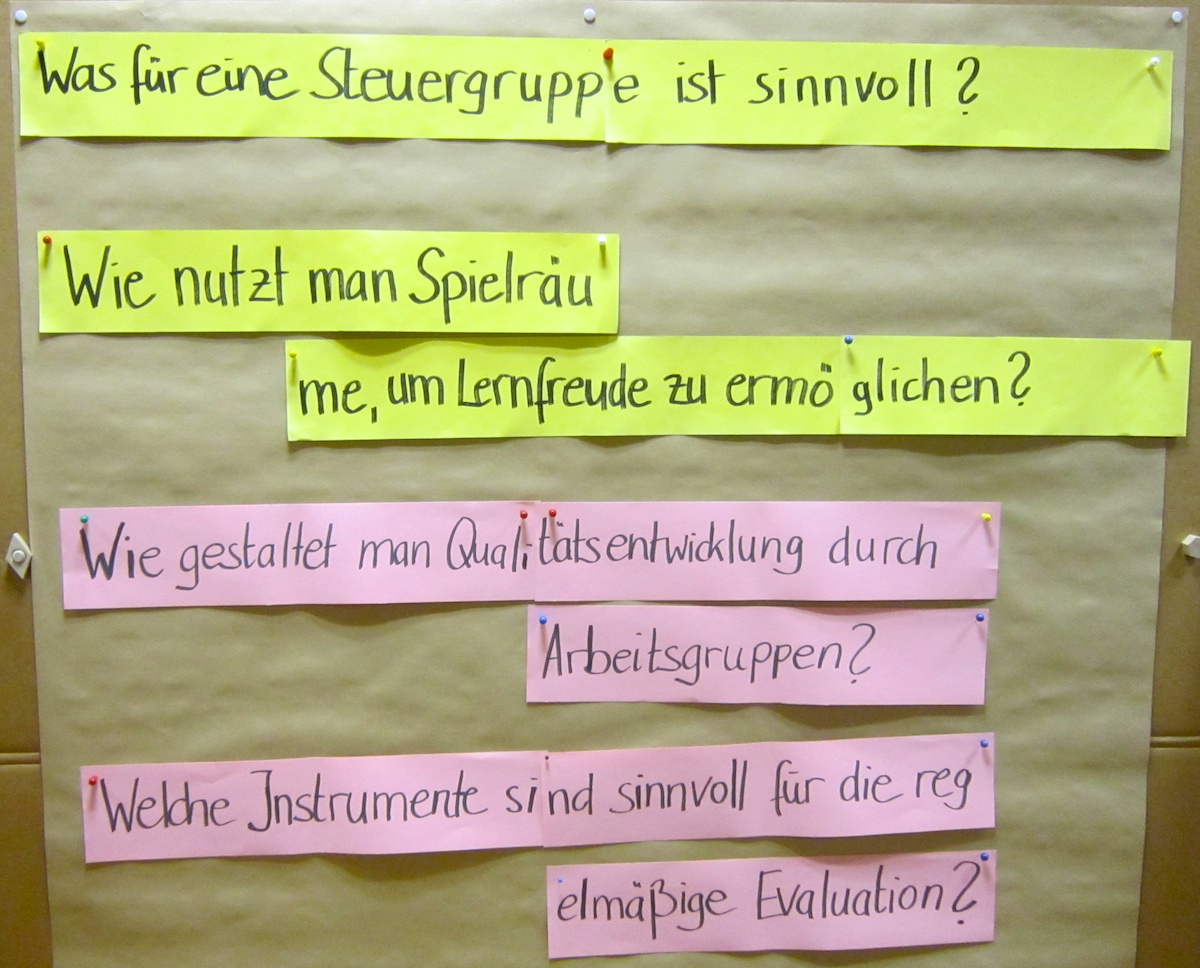 Was für eine Steuergruppe ist sinnvoll?
Wie nutzt man Spielräu
me, um Lernfreude zu ermöglichen?
Wie gestaltet man Qualitätsentwicklung durch
Arbeitsgruppen?
Welche Instrumente sind sinnvoll für die reg
elmäßige Evaluation?